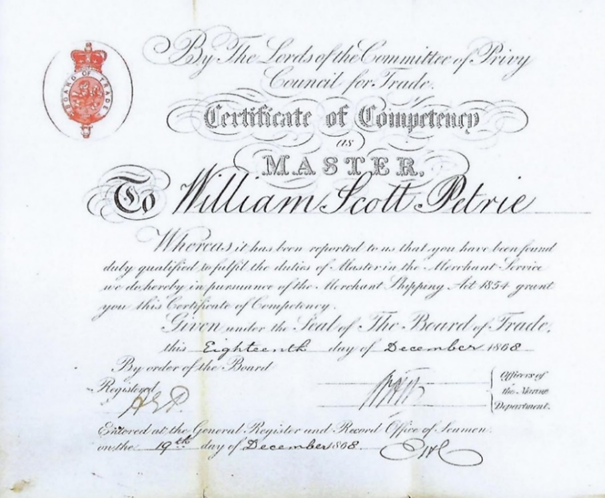 BOARD OF TRADE
By The Lords of the Committee of Privy
Council for Trade.
Certificate of Competency
as
MASTER.
To William Scott Petrie
Whereas it has been reported to us that you have been found
duly qualified to fulfil the duties of Master in the Merchant Service
we do hereby in pursuance of the Merchant Shipping Act 1854 grant
you this Certificate of Competency.
Given under the Seal of The Board of Trade,
this Eighteenth day of December 1868
By order of the Board
Registered
Officers of
the Marine
Department.
Entered at the General Register and Record Office of Seamen
on the 19th day of December 1868